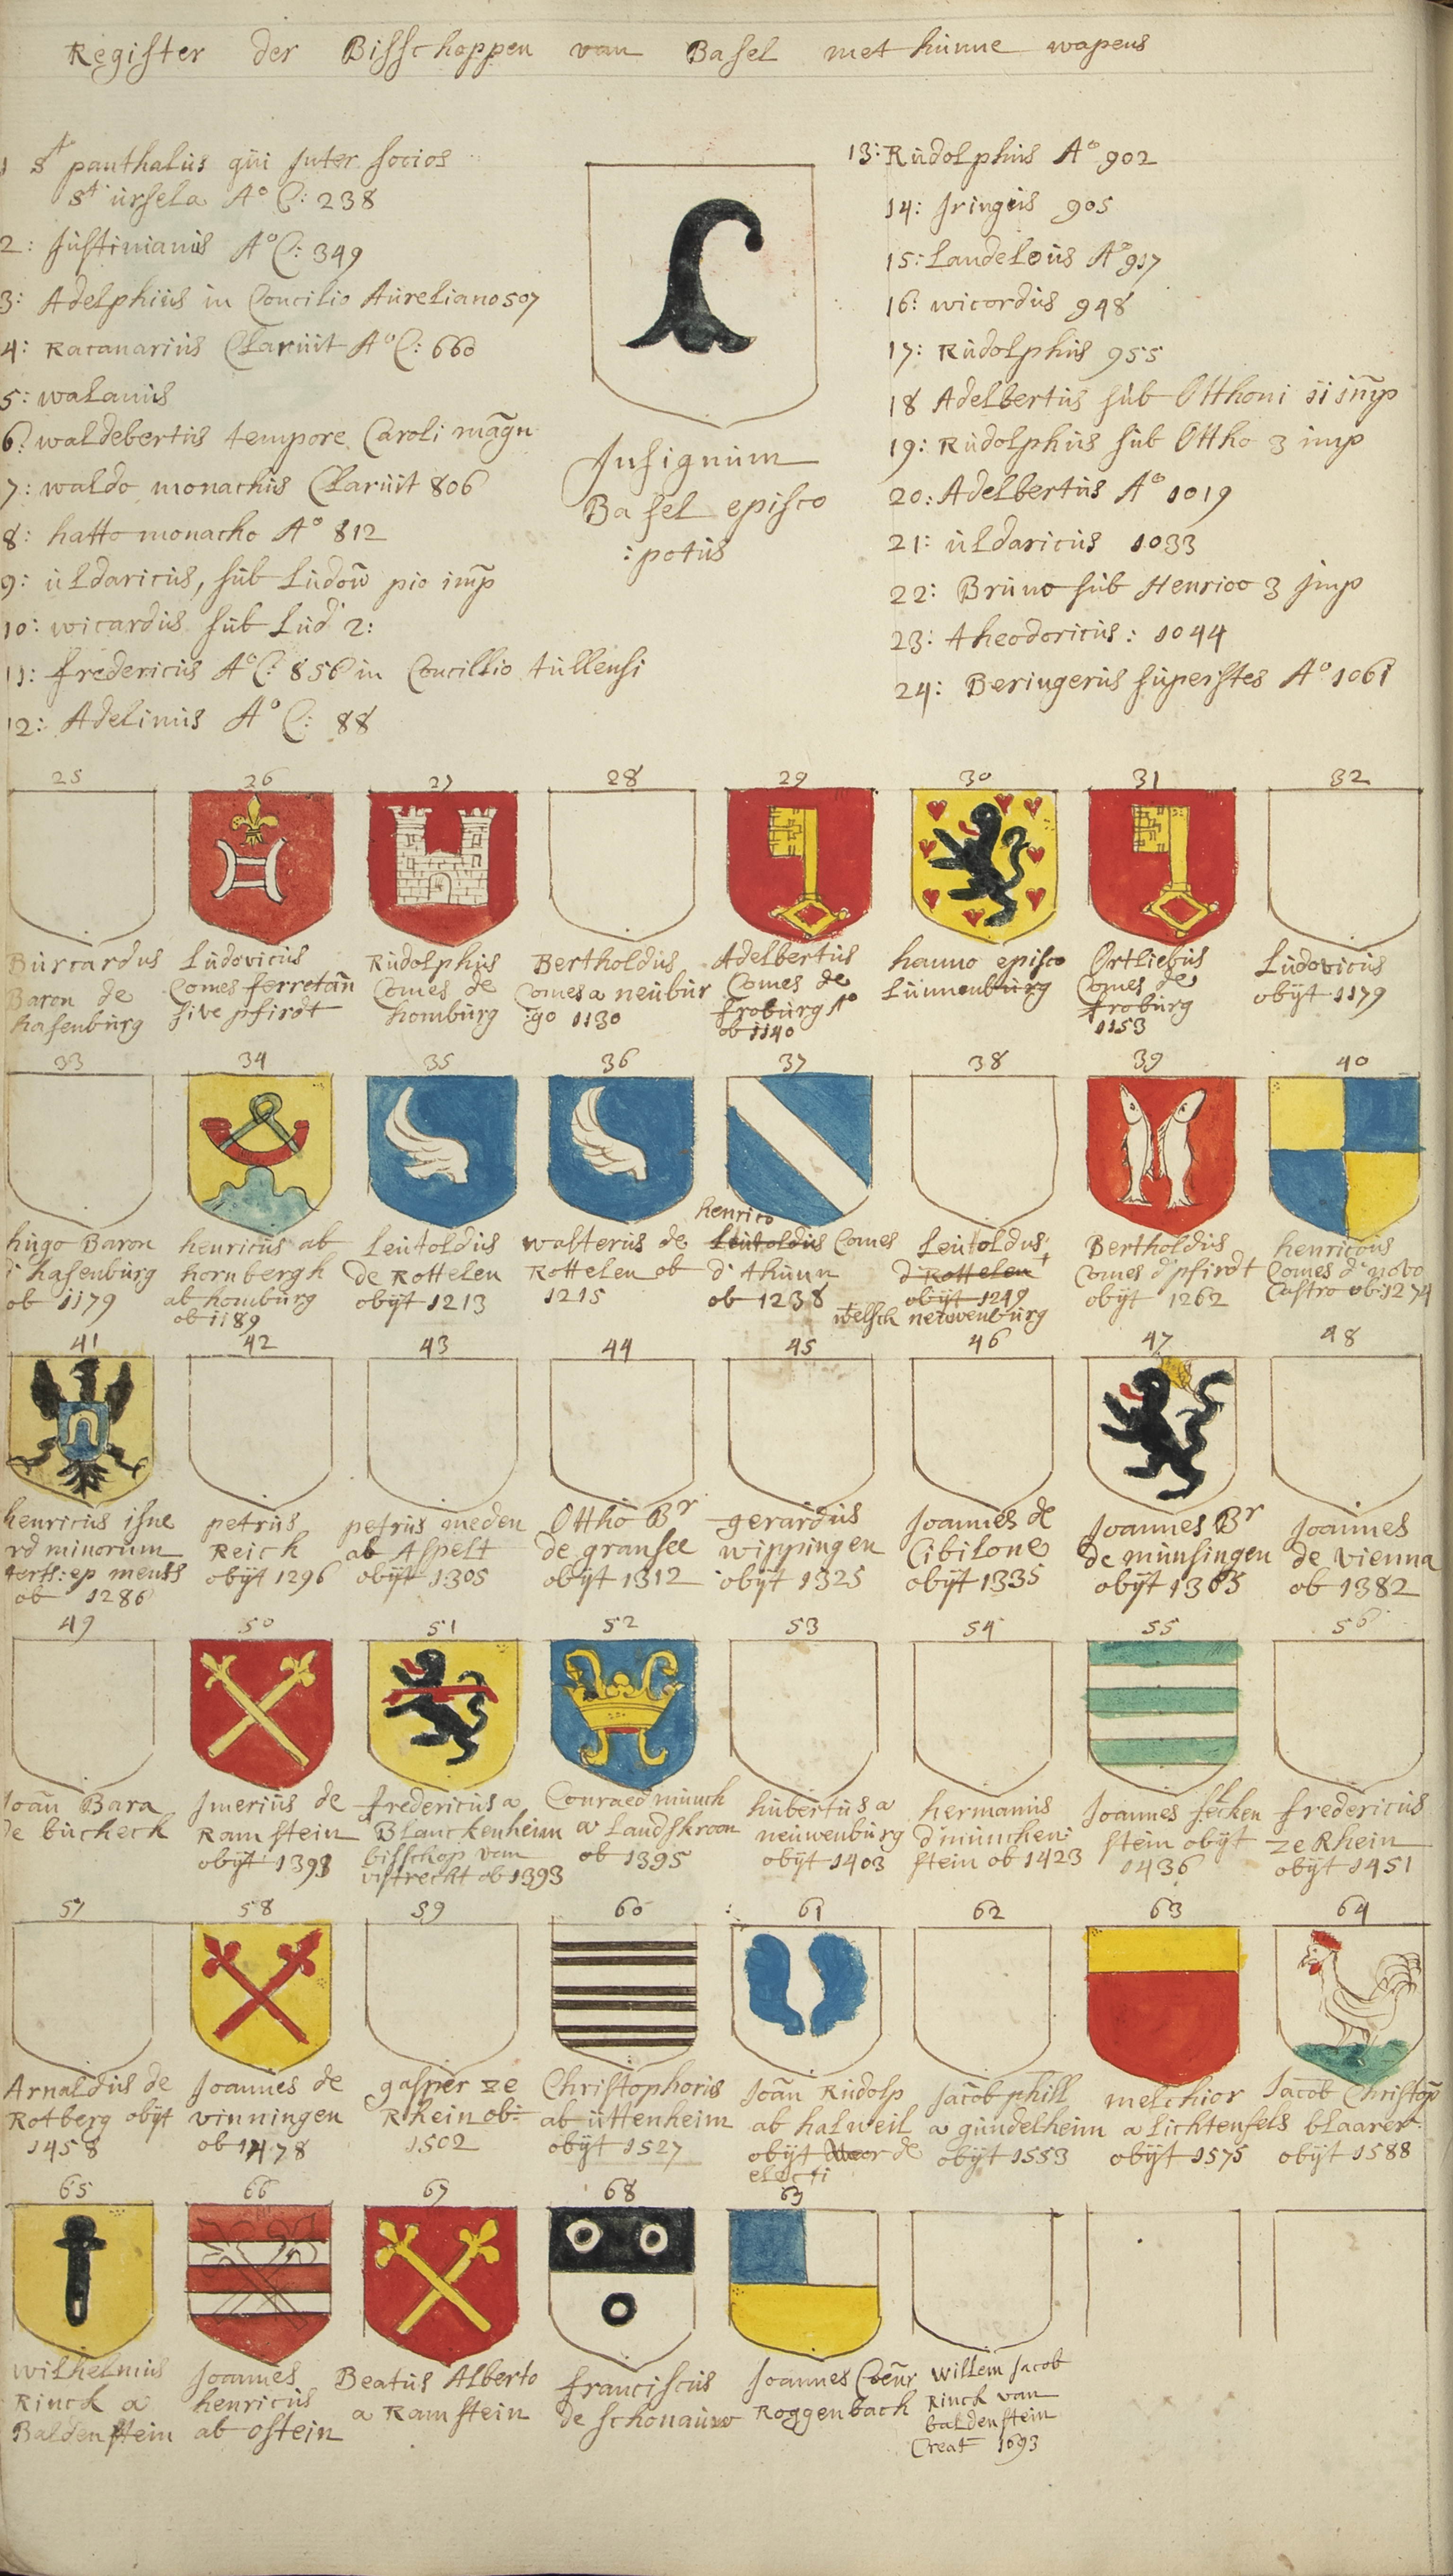 Register der Bisschoppen van Basel met hunne wapens
1 St panthalus qui Inter socios
St ursela Ao C: 238
2: Justinianus Ao C: 349
3: Adelphius in Concilio Aureliano 507
4: Racanarius Claruit Ao C: 660
5: walanus
6: waldebertus tempore Caroli magn
7: waldo monachus Claruit 806
8: hatto monacho Ao 812
9: uldaricus, sub Ludow pio imp
10: wicardus sub Lud 2:
11: fredericus Ao C: 856 in Concillio tullensi
12: Adelinus Ao C: 88
Insignium
Basel episco
:potus
13: Rudolphus Ao 902
14: Iringus 905
15: Landelous Ao 917
16: wicordus 948
17: Rudolphus 955
18 Adelbertus sub Otthoni ii imp
19: Rudolphus sub Ottho 3 imp
20: Adelbertus Ao 1019
21: uldaricus 1033
22: Bruno sub Henrico 3 Imp
23: theodoricus: 1044
24: Beringerus superstes Ao 1061
25 26 27 28 29 30 31 32
Burcardus
Baron de
hasenburg
Ludovicus
Comes ferretan
sive pfirdt
Rudolphus
Comes de
homburg
Bertholdus
Comes a neubur
:go 1130
Adelbertus
Comes de
froburg Ao
ob 1140
hanno episco
Lunnenburg
Ortliebus
Comes de
froburg
1153
Ludovicus
obijt 1179
33 34 35 36 37 38 39 40
hugo Baron
d' hasenburg
ob 1179
henricus ab
hornbergh
ab homburg
ob 1189
Leutoldus
de Rottelen
obijt 1213
walterus de
Rottelen ob
1215
henrico
Leutoldus Comes
d' thunn
ob 1238
Leutoldus
d' Rottelen
obijt 1249
welsch netwenburg
Bertholdus
Comes d' pfirdt
obijt 1262
henricus
Comes d' novo
Castro ob: 1274
41 42 43 44 45 46 47 48
henricus isne
rd minorum
ep ments
ob 1286
petrus
Reich
obijt 1296
petrus meden
ab Aspelt
obijt 1305
Ottho Br
de gransee
obijt 1312
gerardus
wippingen
obijt 1325
Joannes de
Cibilone
obijt 1335
Joannes Br
de munsingen
obijt 1365
Joannes
de vienna
ob 1382
49 50 51 52 53 54 55 56
Joan Bara
de bucheck
Imerius de
Ramstein
obijt 1398
fredericus a
Blanckenheim
bisschop van
uistrecht ob 1393
Conraed munch
a Landskroon
ob 1395
hubertus a
neuwenburg
obijt 1403
hermanus
d' munchen
stein ob 1423
Joannes fecken
stein obijt
1436
fredericus
ze Rhein
obijt 1451
57 58 59 60 61 62 63 64
Arnaldus de
Rotberg obijt
1458
Joannes de
vinningen
ob 1478
gasper ze
Rhein obi:
1502
Christophoris
ab uttenheim
obijt 1527
Joan Rudolp
ab halweil
obijt de
electi
Jacob phill
a gundelheim
obijt 1553
melchior
a lichtenfels
obijt 1575
Jacob Christop
blaarer
obijt 1588
65 66 67 68 63
wilhelmus
Rinck a
Baldenstein
Joannes
henricus
ab ostein
Beatus Alberto
a Ramstein
franciscus
de schonauw
Joannes Coenr
Roggenbach
Willem Jacob
Rinck van
baldenstein
Creat 1693